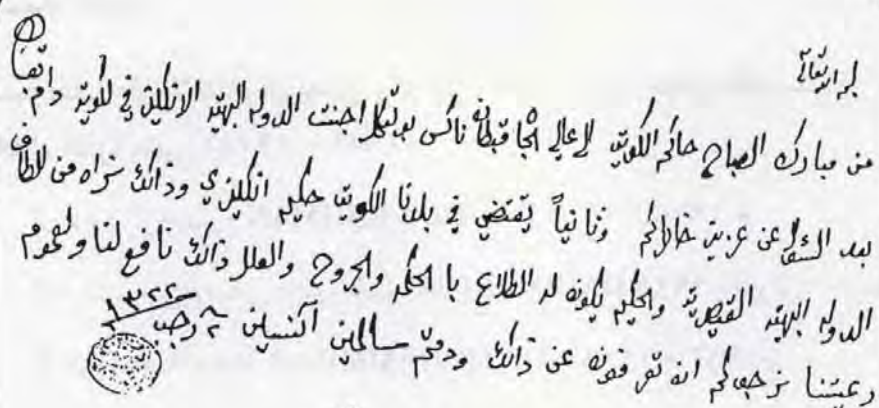 بسم الله تعالى
من مبارك الصباح حاكم الكويت الى عالي الجاه قبطان ناكس بولتيكل اجنت الدوله البهيه الانكليز في الكويت دام بقاه
بعد السؤال عن عزيز خاطركم وثانياً يقتضي في بلدنا الكويت حكيم انكليزي وذالك نراه من الطاف
الدوله البهيه القيصريه والحكيم يكون له اطلاع با الحكمه والجروح والعلل ذالك نافع لنا ولعموم
رعيتنا نرجوكم ان تعرفون عن ذالك ودمتم سالمين ٢ رجب
١٣٢٢